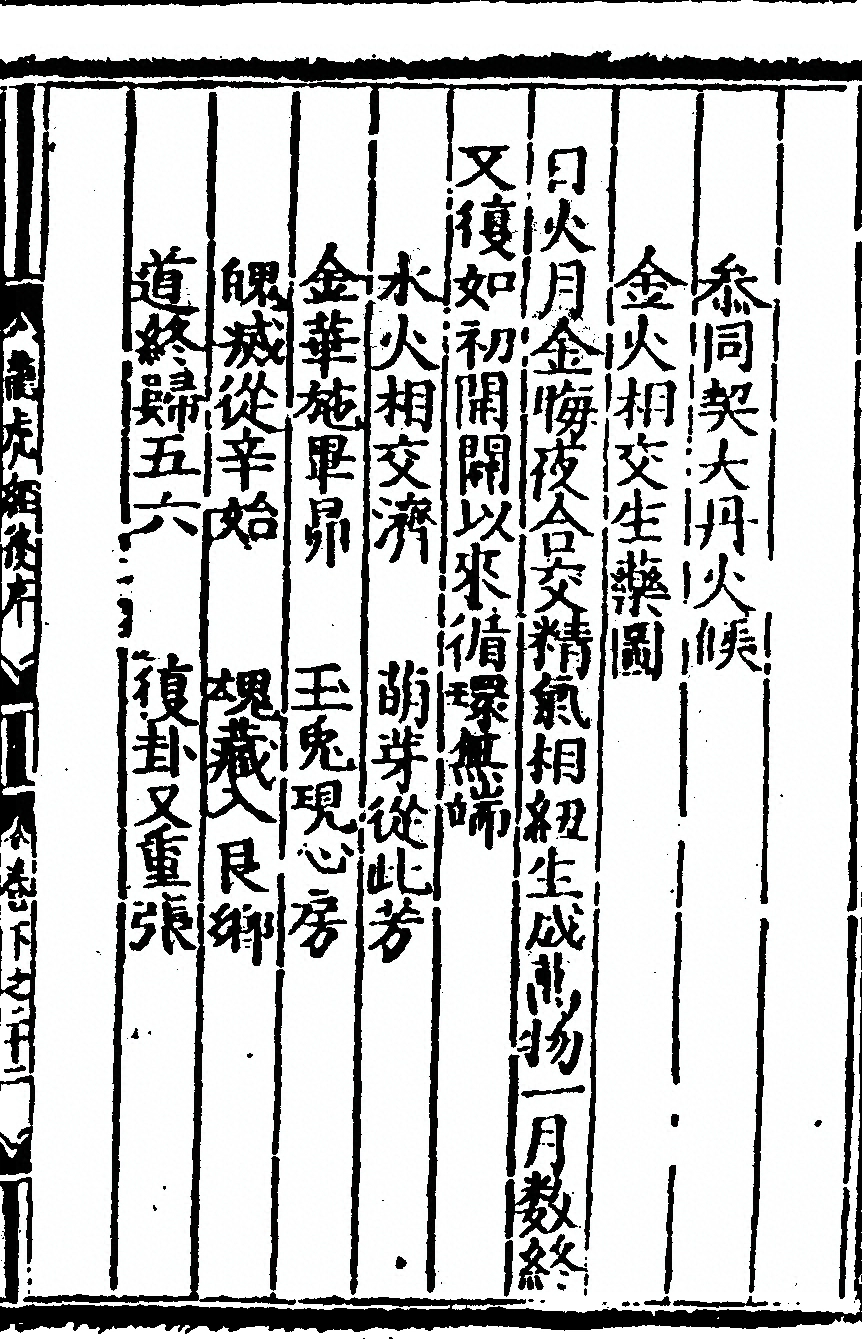 叅同契大丹火候
金火相交生藥圖
日火月金晦夜合交精氣相紐生成萬物一月數終
又復如初開闢以來循環無端
水火相交濟 萌芽從此芳
金華施畢昴 玉兎現心房
魄減從辛始 魂藏入艮鄉
道終歸五六 復卦又重張
龍虎經後序
卷下之二十二